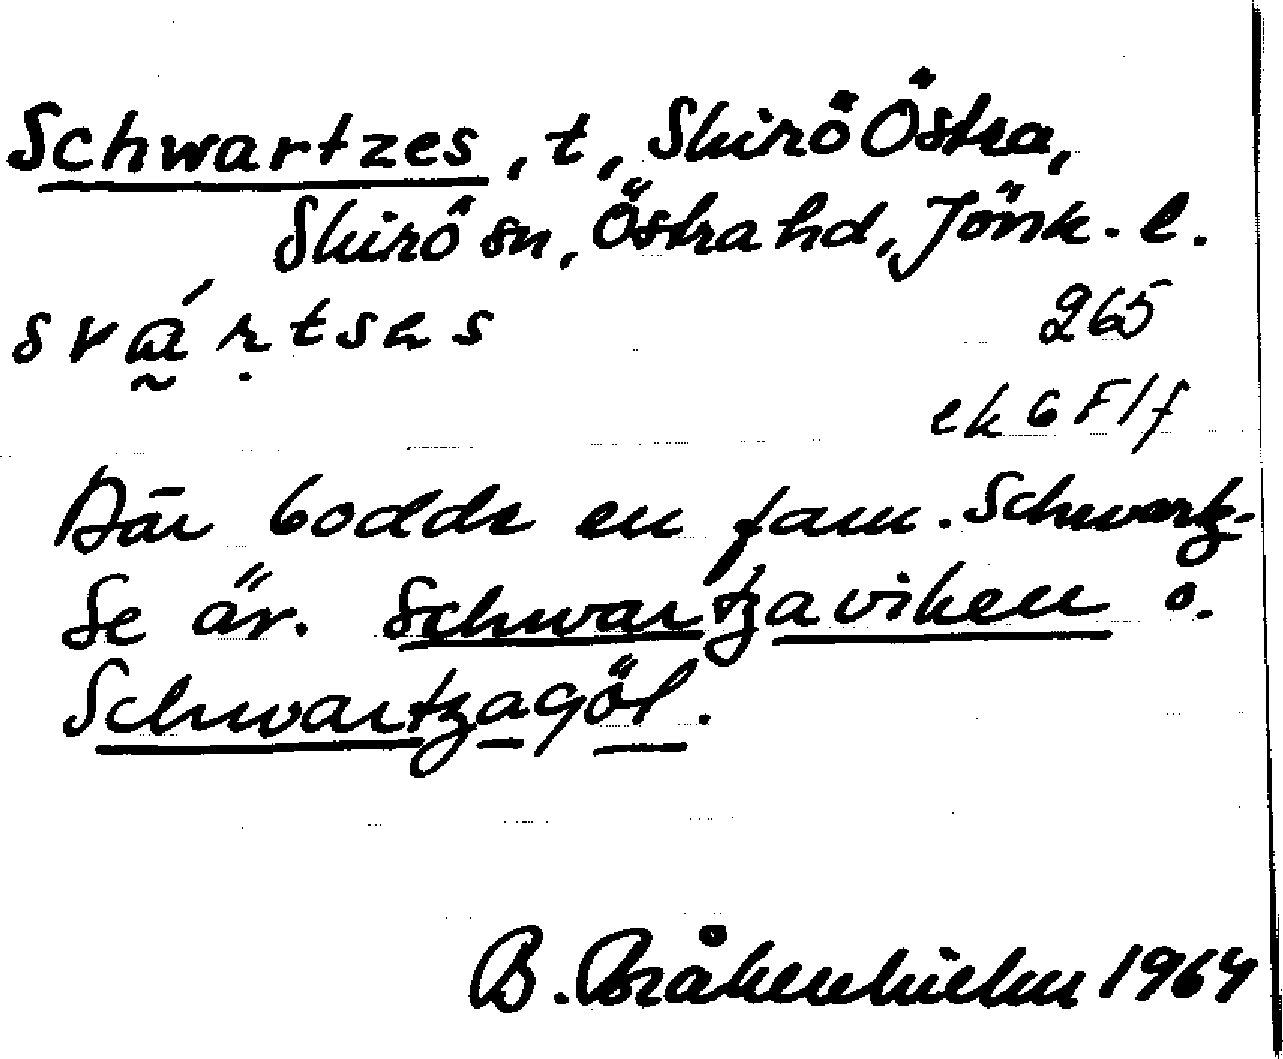 Schwartzes, t, Skirö Östra,
Skirö sn, Östra hd, Jönk. l.
svá̰ṛtses
265
ek 6 F/f
Där bodde en fam. Schwartz.
Se äv. Schwartzaviken o.
Schwartzagöl.
B. Bråkenhielm 1964